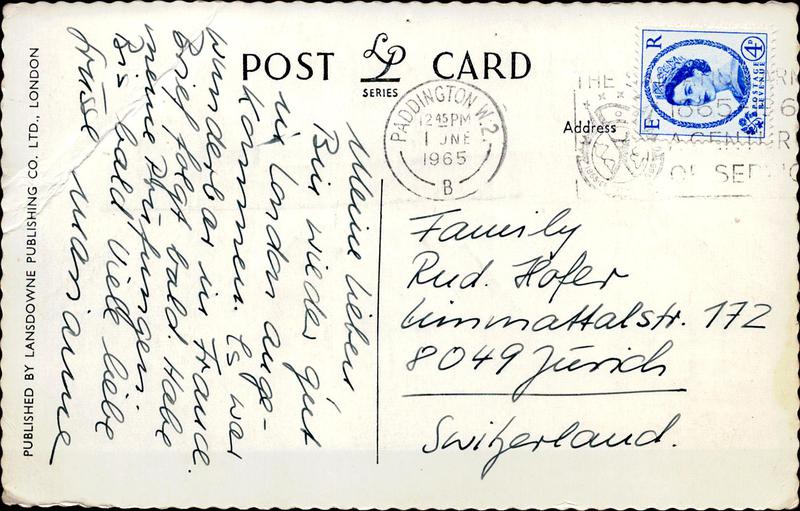 PUBLISHED BY LANSDOWNE PUBLISHING CO. LTD., LONDON
POST CARD
LP
SERIES
PADDINGTON W.2.
12 45 PM
1 JNE
1965
B
THE
1865
CENTER
OF SERVIC
E R
4D
POSTAGE
REVENUE
Address
Meine Lieben
Bin wieder gut
in London ange-
kommen. Es war
wunderbar in France.
Brief folgt bald. Habe
meine Prüfungen.
Bis bald viele liebe
Grüsse Marianne
Family
Rud. Hofer
Limmattalstr. 172
8049 Zürich
Switzerland.